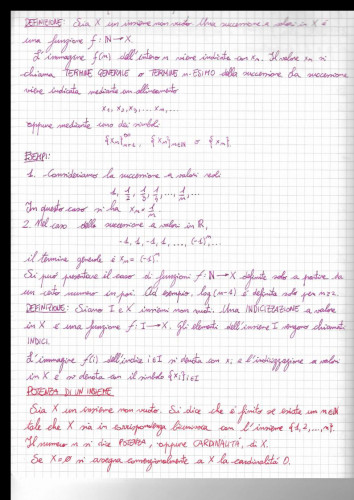 DEFINIZIONE: Sia X un insieme non vuoto. Una successione a valori in X è
una funzione f: ℕ → X.
L'immagine f(n) dell'intero n viene indicata con xₙ. Il valore xₙ si
chiama TERMINE GENERALE o TERMINE n-ESIMO della successione. La successione
viene indicata mediante un allineamento
x₁, x₂, x₃, ... xₙ, ...
oppure mediante uno dei simboli
{xₙ}ₙ₌₁^∞ {xₙ}ₙ∈ℕ o {xₙ}.
ESEMPI:
1. Consideriamo la successione a valori reali
1, 1/2, 1/3, 1/4, ..., 1/n, ...
In questo caso si ha xₙ = 1/n
2. Nel caso della successione a valori in ℝ,
-1, 1, -1, 1, ..., (-1)ⁿ, ...
il termine generale è xₙ = (-1)ⁿ
Si può presentare il caso di funzioni f: ℕ → X definite solo a partire da
un certo numero in poi. Ad esempio, log(n-1) è definita solo per n≥2.
DEFINIZIONE: Siano I e X insiemi non vuoti. Una INDICIZZAZIONE a valori
in X è una funzione f: I → X. Gli elementi dell'insieme I vengono chiamati
INDICI.
L'immagine f(i) dell'indice i∈I si denota con xᵢ e l'indicizzazione a valori
in X si denota con il simbolo {xᵢ}ᵢ∈I
POTENZA DI UN INSIEME
Sia X un insieme non vuoto. Si dice che è finito se esiste un n∈ℕ
tale che X sia in corrispondenza biunivoca con l'insieme {1, 2, ..., n}.
Il numero n si dice POTENZA, oppure CARDINALITÀ, di X.
Se X=∅ si assegna convenzionalmente a X la cardinalità 0.